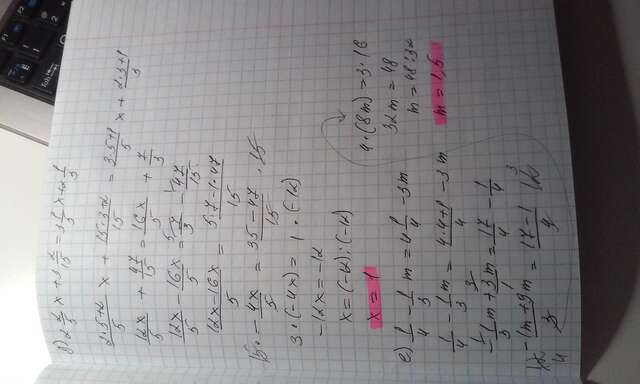 g) 2 2/5 x + 3 2/15 = 3 1/5 x + 2 1/3
(2·5+2)/5 x + (15·3+2)/15 = (3·5+1)/5 x + (2·3+1)/3
12x/5 + 47/15 = 16x/5 + 7/3
12x/5 - 16x/5 = 7/3 - 47/15
(12x-16x)/5 = (5·7-1·47)/15
15· -4x/5 = (35-47)/15 ·15
3·(-4x) = 1·(-12)
-12x = -12
x = (-12):(-12)
x = 1
e) 1/4 - 1/3 m = 4 1/4 - 3m
1/4 - 1/3 m = (4·4+1)/4 - 3m
-1/3 m + 3m/1 = 17/4 - 1/4
12 (-1m+9m)/3 = (17-1)/4 12
4·(8m) = 3·16
32m = 48
m = 48:32
m = 1,5